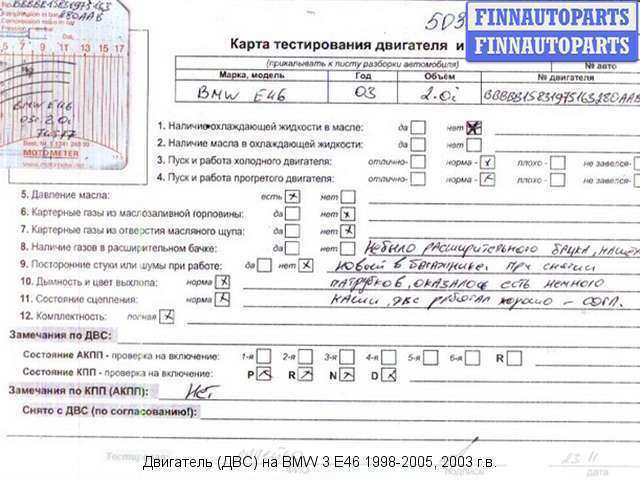 FINNAUTOPARTS
FINNAUTOPARTS
Карта тестирования двигателя и
(прикалывать к листу разборки автомобиля)
№ авто
Марка, модель Год Объём № двигателя
BMW E46 03 2.0i BBBBB1583197S163280AAB
1. Наличие охлаждающей жидкости в масле: да нет
2. Наличие масла в охлаждающей жидкости: да нет
3. Пуск и работа холодного двигателя: отлично- норма - плохо - не завелся-
4. Пуск и работа прогретого двигателя: отлично- норма - плохо - не завелся-
5. Давление масла: есть нет
6. Картерные газы из маслозаливной горловины: да нет
7. Картерные газы из отверстия масляного щупа: да нет
8. Наличие газов в расширительном бачке: да нет
Не было расширительного бачка, нашел
9. Посторонние стуки или шумы при работе: да нет
новый в багажнике. При снятии
10. Дымность и цвет выхлопа: норма
патрубков, оказалось есть немного
11. Состояние сцепления: норма
каши, двс работал хорошо -
12. Комплектность: полная
Замечания по ДВС:
Состояние АКПП - проверка на включение: 1-я 2-я 3-я 4-я 5-я 6-я R
Состояние КПП - проверка на включение: P R N D
Замечания по КПП (АКПП): Нет
Снято с ДВС (по согласованию!):
BMW E46
MOTOMETER
5 7 9 11 13 15 17
подпись дата
23.11
Двигатель (ДВС) на BMW 3 E46 1998-2005, 2003 г.в.